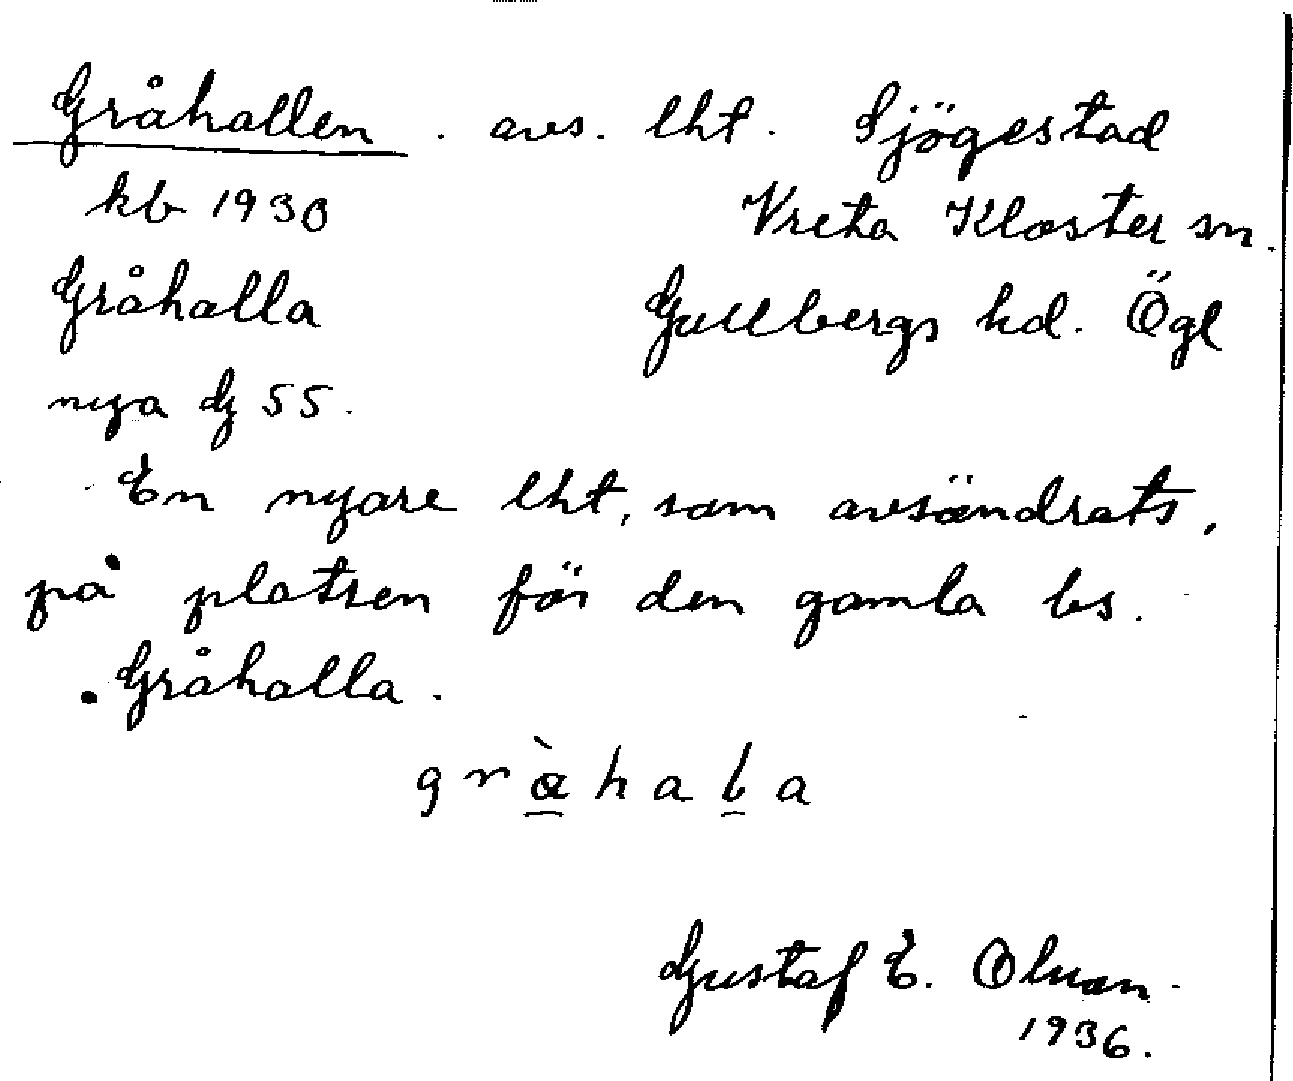 Gråhallen. avs. lht. Sjögestad
kb 1930 Vreta Kloster sn.
Gråhalla Gullbergs hd. Ögl
nya G 55.
En nyare lht, som avsöndrats,
på platsen för den gamla bs.
Gråhalla.
gràhala
Gustaf E. Olsson
1936.